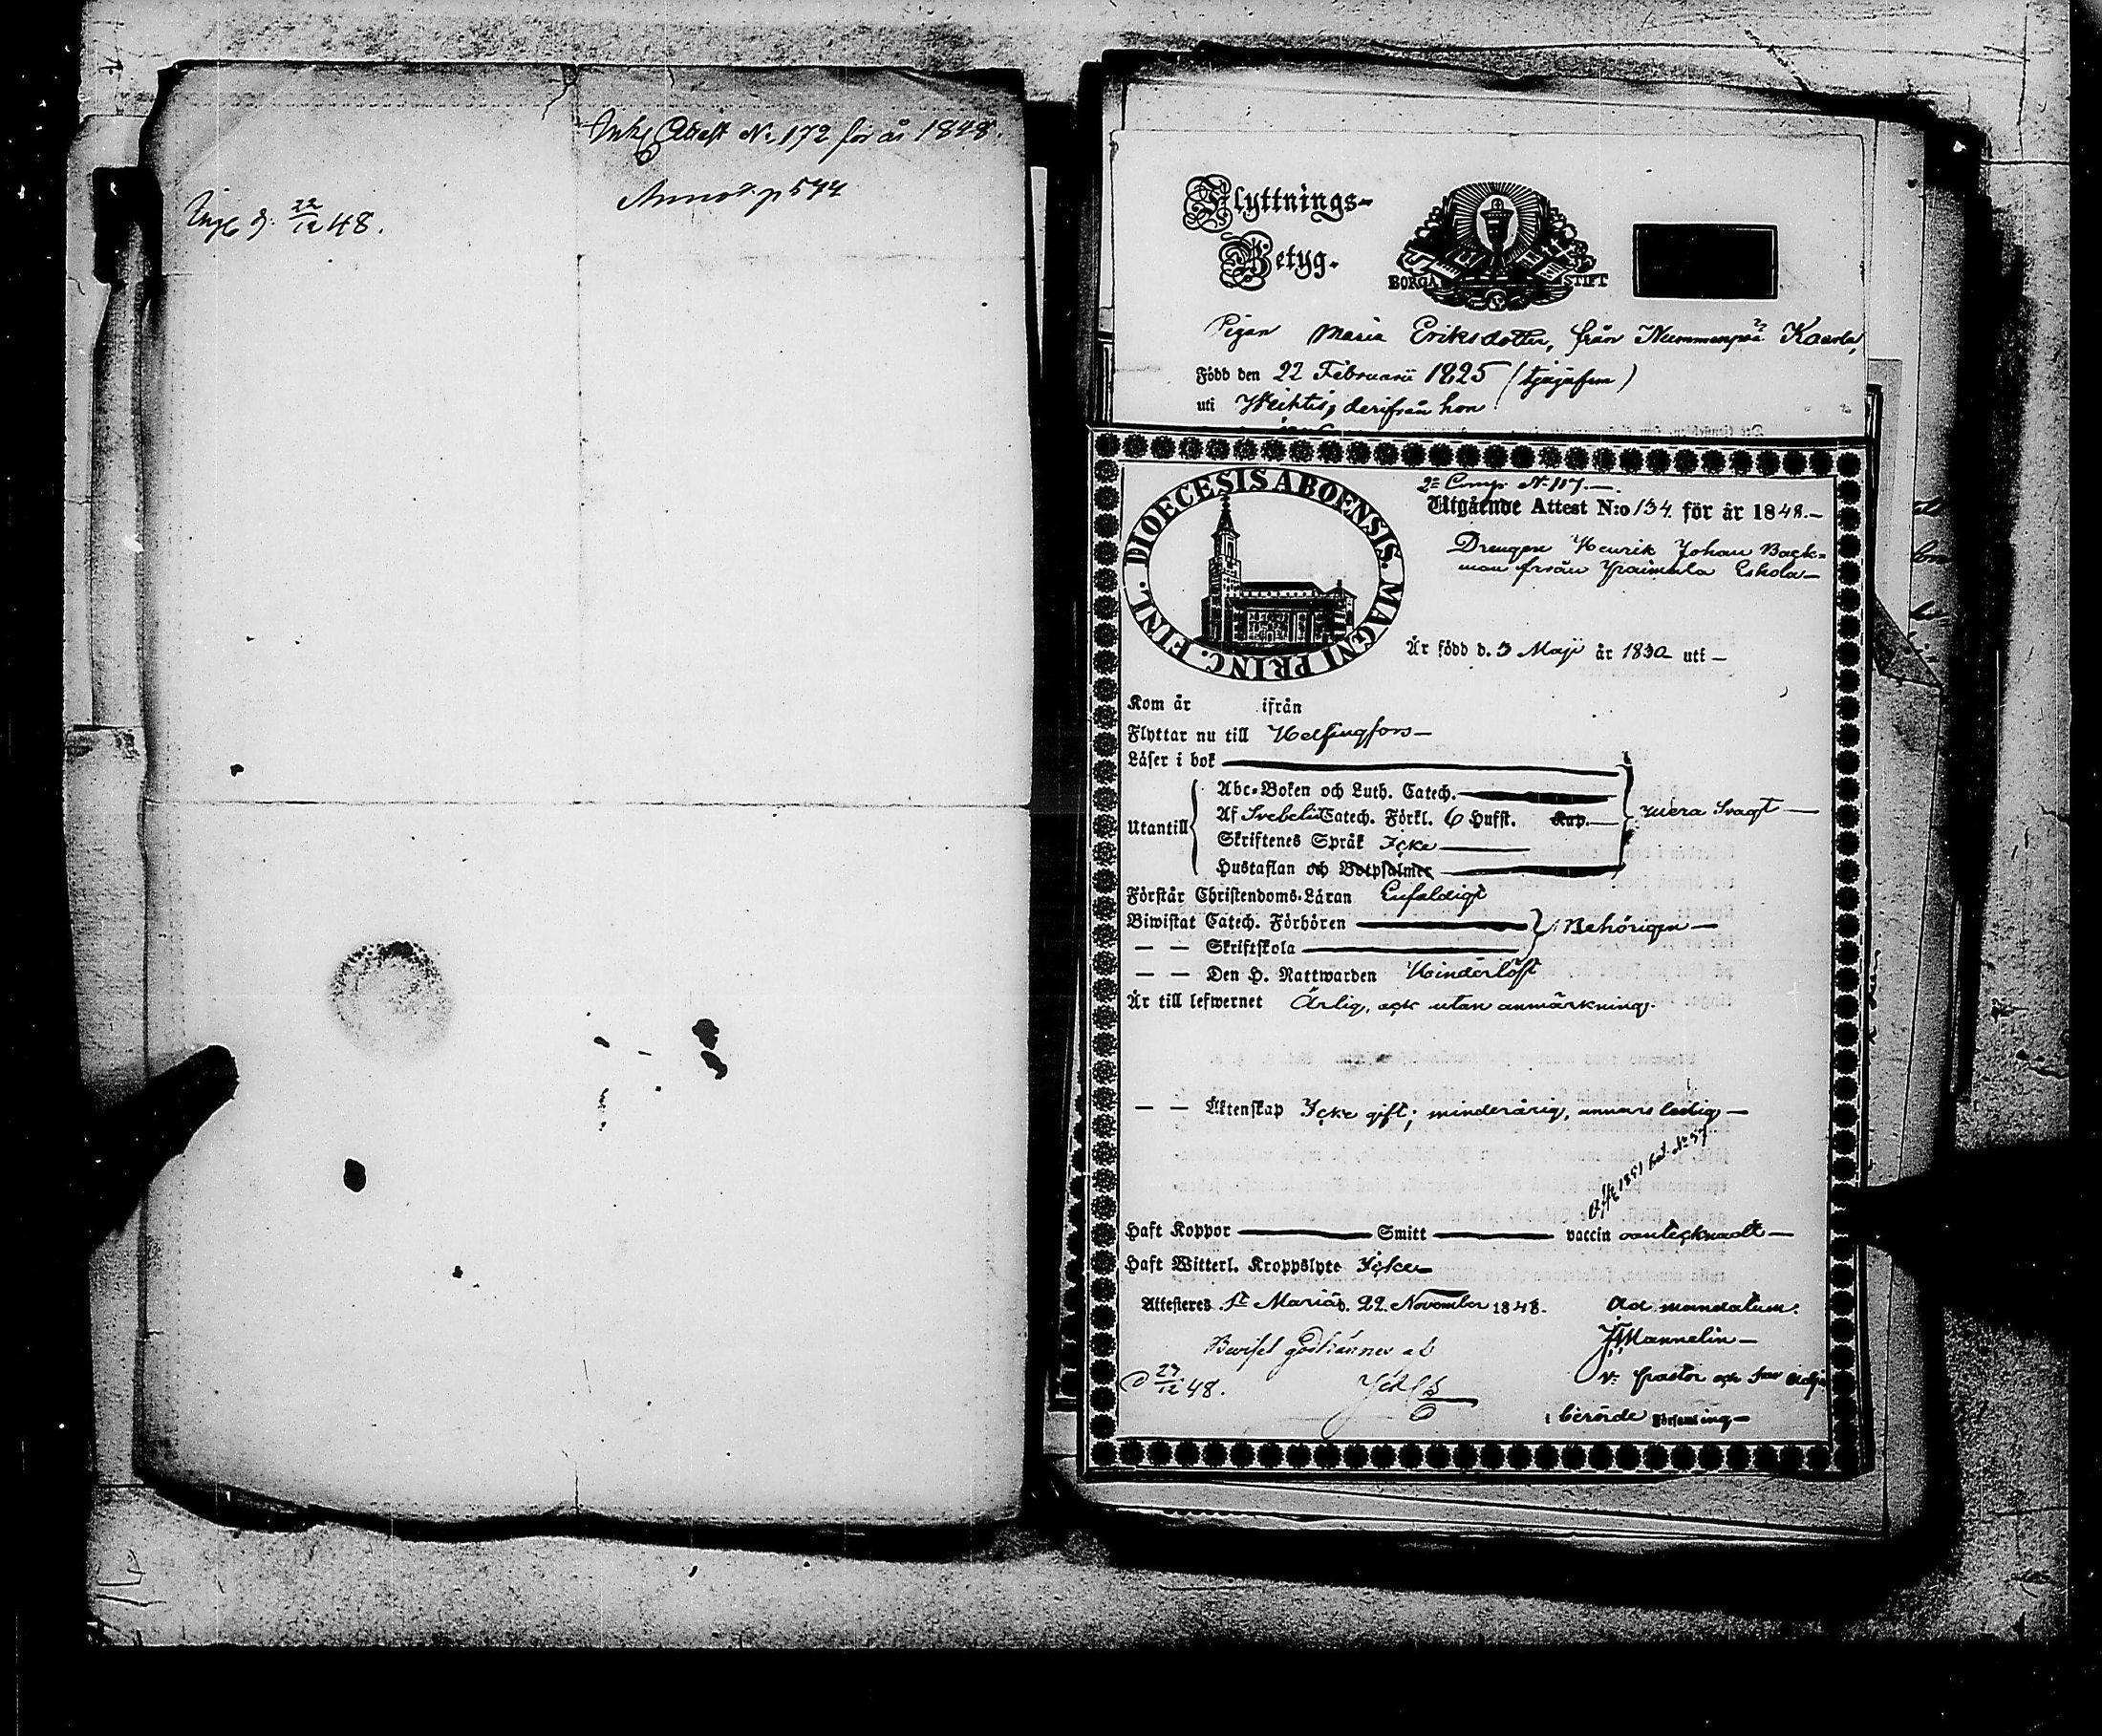 Attest No. 172 för år 1848.
p 544
22/12 48.
Flyttnings-
Betyg.
BORGÅ STIFT
Pigan Maria Eriksdotter, från Nummenpää Kaarla,
Född den 22 Februarii 1825 (tjugufem)
uti Wichtis, derifrån hon
DIOECESIS ABOENSIS. MAGNI PRINC. FINL.
2= Comp. No 117.—
Utgående Attest N:o 134. för år 1848.—
Drengen Henrik Johan Back-
man från Eskola—
Är född d. 3 Maji år 1830 uti —
Kom år ifrån
Flyttar nu till Helsingfors—
Läser i bok
Abc-Boken och Luth. Catech.
Utantill
Af Svebelii Catech. Förkl. 6 Hufst. Kap.
Skriftenes Språk Icke
Hustaflan och Botpsalmer
Svagt —
Förstår Christendoms-Läran Enfaldigt
Biwistat Catech. Förhören
Behörigen —
— — Skriftskola
— — Den H. Nattwarden Hinderlöst
Är till lefwernet Ärlig, och utan anmärkning.
— — Äktenskap Icke gift; minderårig, annars ledig —
1851
Haft Koppor Smitt vaccin oantecknadt —
Haft Witterl. Kroppslyte Icke—
Attesteres St Mariä d. 22 November 1848. Ad mandatum:
Mannelin —
Beviset godkännes af
d 27/12 48.
v. pastor och
i berörde Församling —